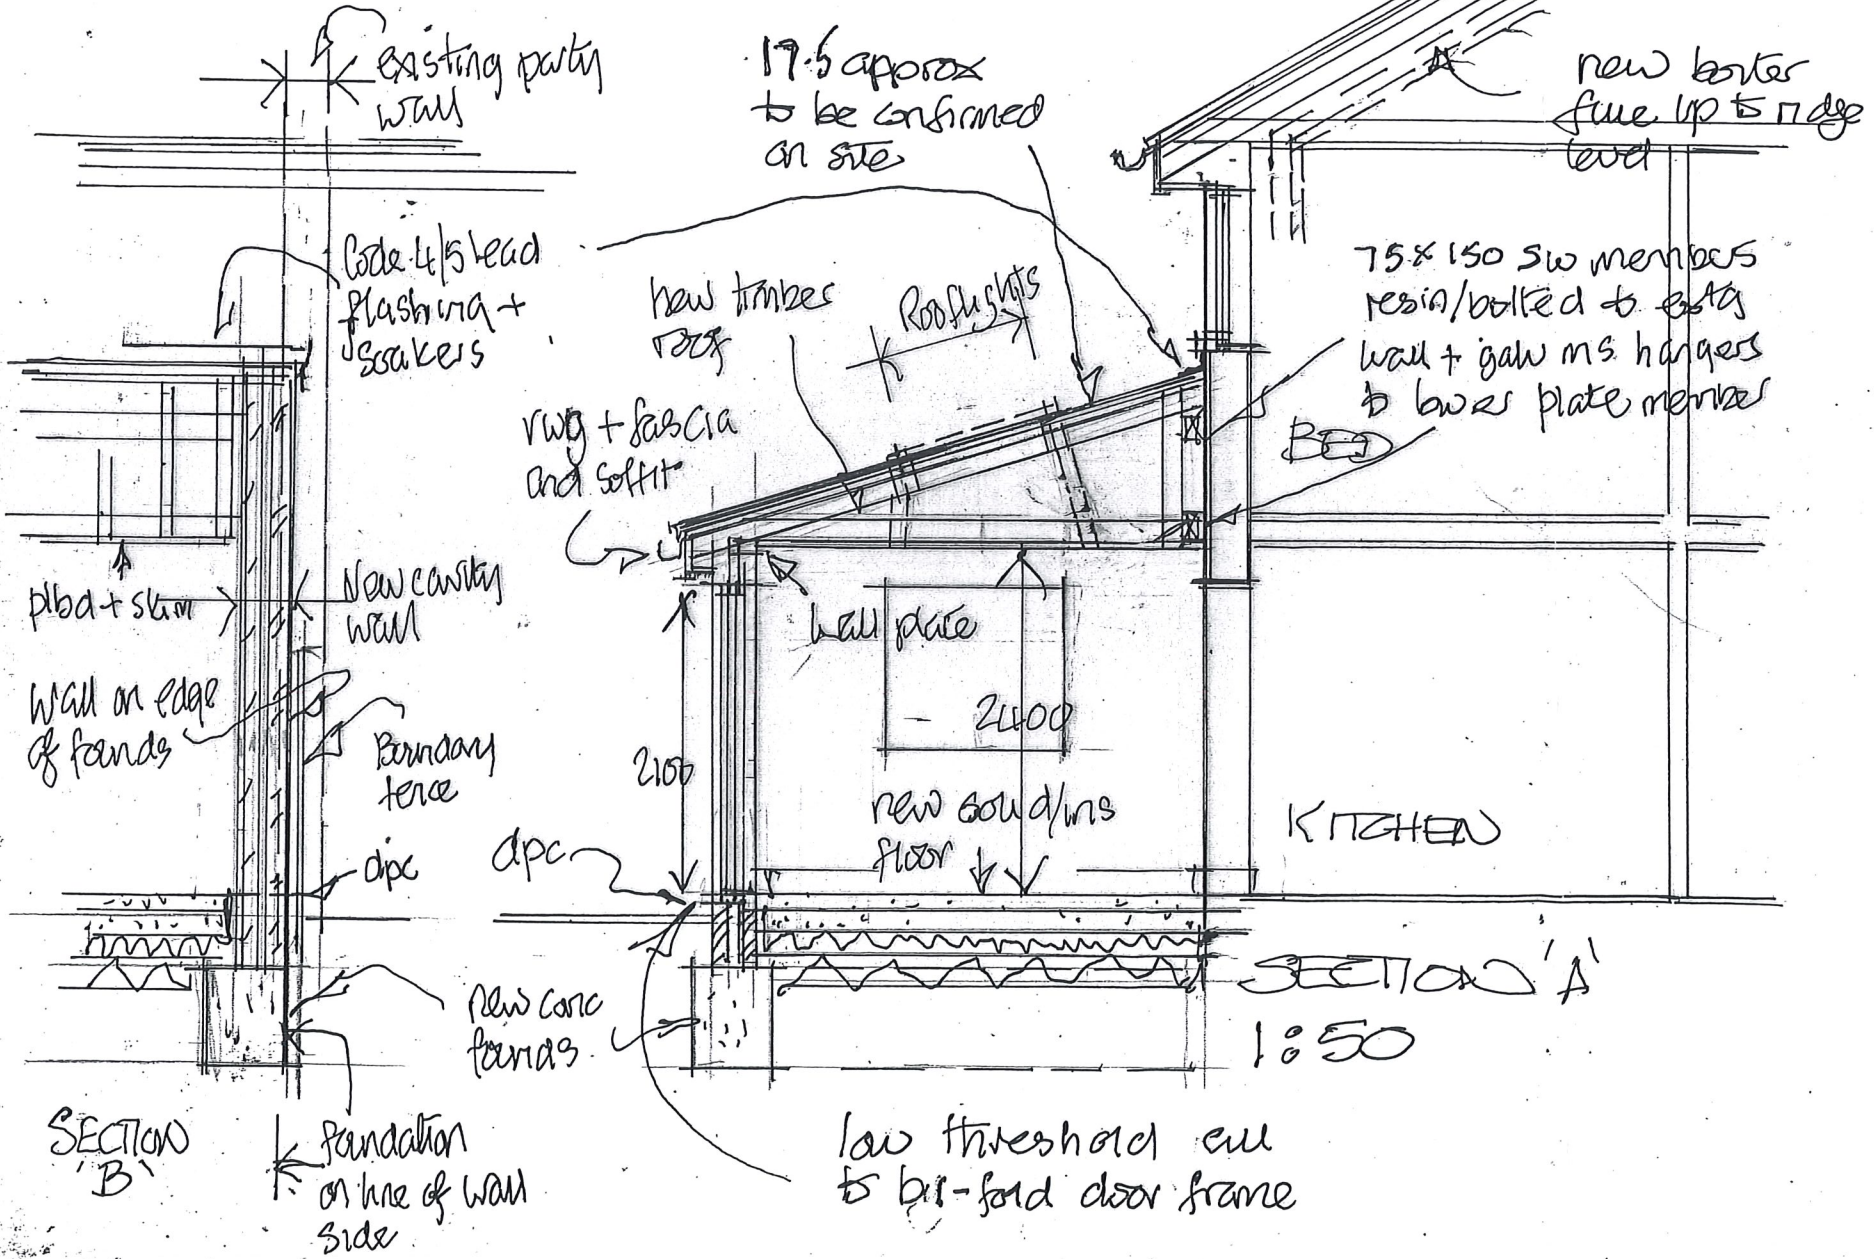 existing party
wall
17.5 approx
to be confirmed
on site
new boiler
flue up to ridge
level
Code 4/5 lead
flashing +
soakers
new timber
roof
Rooflights
75 x 150 sw members
resin/bolted to extg
wall + galv ms hangers
to lower plate member
rwg + fascia
and soffit
BED
plbd + skim
New cavity
wall
wall plate
wall on edge
of founds
Boundary
fence
2100
2400
new solid/ins
floor
KITCHEN
dpc
dpc
new conc
founds
SECTION 'A'
1:50
SECTION
'B'
foundation
on line of wall
side
low threshold cill
to bi-fold door frame